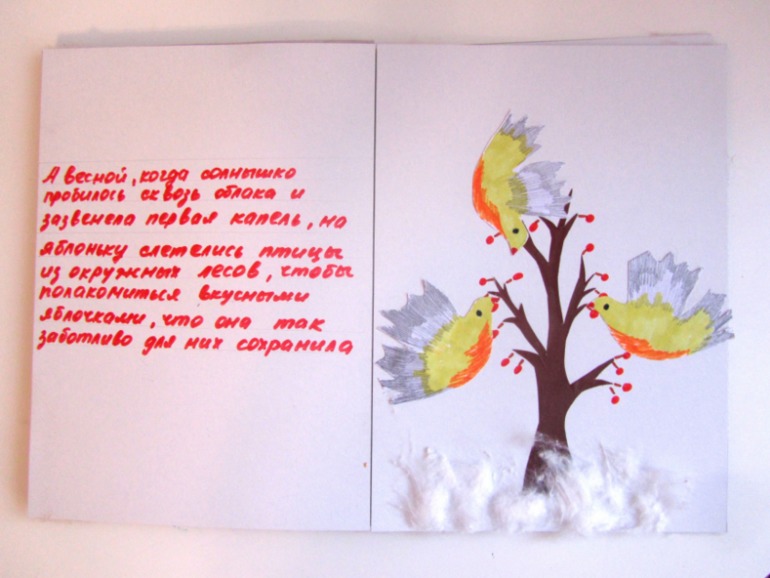 А весной, когда солнышко
пробилось сквозь облака и
зазвенела первая капель, на
яблоньку слетелись птицы
из окружных лесов, чтобы
полакомиться вкусными
яблочками, что она так
заботливо для них сохранила